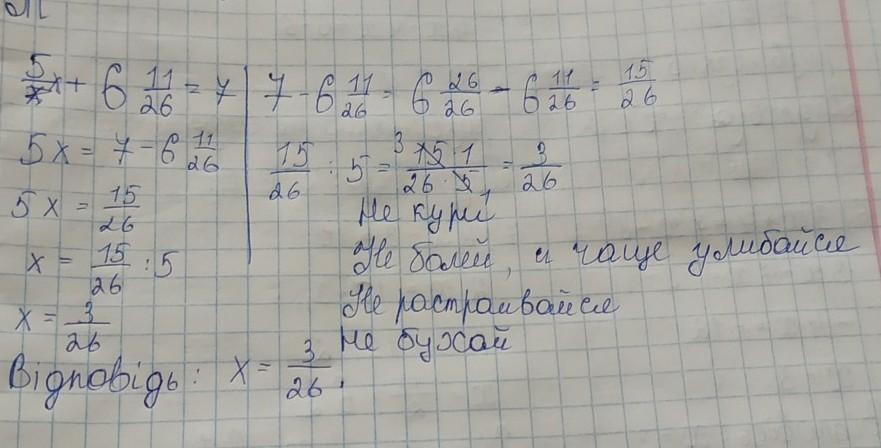 5/x x + 6 11/26 = 7
5x = 7 - 6 11/26
5x = 15/26
x = 15/26 : 5
x = 3/26
7 - 6 11/26 = 6 26/26 - 6 11/26 = 15/26
15/26 : 5 = 15·1/26·5 = 3/26
Не кури
Не болей, и чаще улибайся
Не растраивайся
Не бухай
Відповідь: x = 3/26.